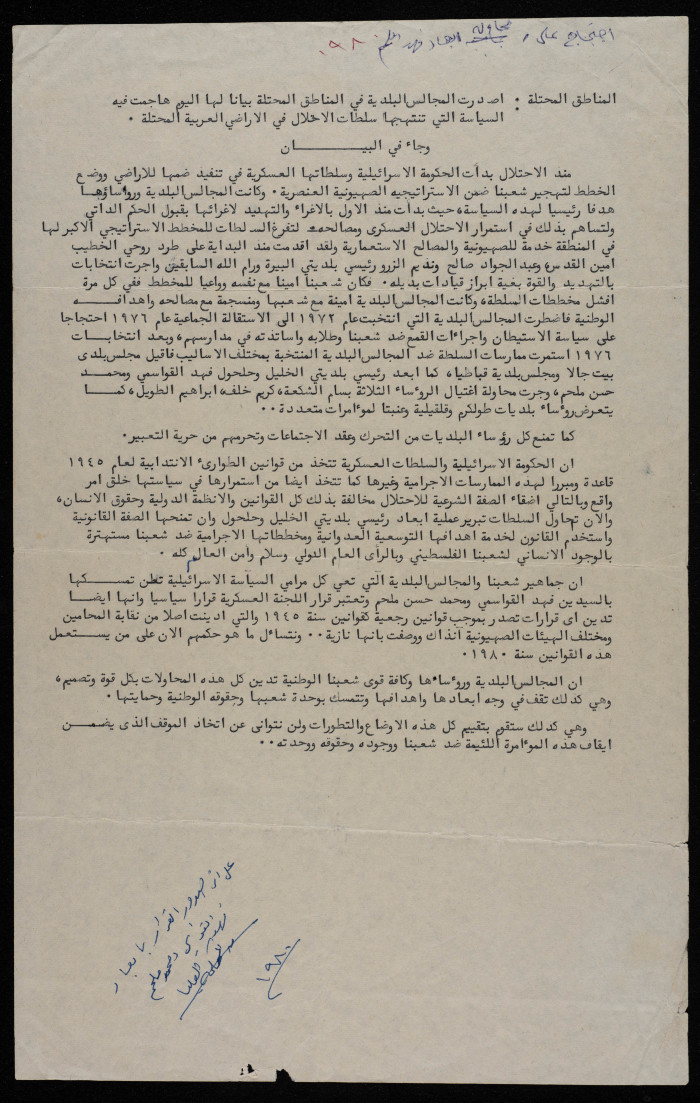 احتجاج على محاولة ابعاد فهد ملحم ١٩٨٠
المناطق المحتلة : اصدرت المجالس البلدية في المناطق المحتلة بيانا لها اليوم هاجمت فيه
السياسة التي تنتهجها سلطات الاحلال في الاراضي العربية المحتلة .
وجاء في البيـــــــان
منذ الاحتلال بدأت الحكومة الاسرائيلية وسلطاتها العسكرية في تنفيذ ضمها للاراضي ووضع
الخطط لتهجير شعبنا ضمن الاستراتيجيه الصهيونية العنصرية . وكانت المجالس البلدية وروءساوءها
هدفا رئيسيا لهذه السياسة، حيث بدأت منذ الاول بالاغراء والتهديد لاغرائها بقبول الحكم الذاتي
ولتساهم بذلك في استمرار الاحتلال العسكرى ومصالحه لتفرغ السلطات للمخطط الاستراتيجي الاكبر لها
في المنطقة خدمة للصهيونية والمصالح الاستعمارية ولقد اقدمت منذ البداية على طرد روحي الخطيب
امين القدس وعبد الجواد صالح ونديم الزرو رئيسي بلديتي البيرة ورام الله السابقين واجرت انتخابات
بالتهديد والقوة بغية ابراز قيادات بديله . فكان شعبنا امينا مع نفسه وواعيا للمخطط ففي كل مرة
افشل مخططات السلطة، وكانت المجالس البلدية امينة مع شعبها ومنسجمة مع مصالحه واهدافـــه
الوطنية فاضطرت المجالس البلدية التي انتخبت عام ١٩٧٢ الى الاستقالة الجماعية عام ١٩٧٦ احتجاجا
على سياسة الاستيطان واجراءات القمع ضد شعبنا وطلابه واساتذته في مدارسهم، وبعد انتخابـــات
١٩٧٦ استمرت ممارسات السلطة ضد المجالس البلدية المنتخبة بمختلف الاساليب فاقيل مجلس بلدى
بيت جالا ومجلس بلدية قباطيا، كما ابعد رئيسي بلديتي الخليل وحلحول فهد القواسمي ومحمـــد
حسن ملحم، وجرت محاولة اغتيال الروءساء الثلاثة بسام الشكعة، كريم خلف، ابراهيم الطويل، كمـــا
يتعرض روءساء بلديات طولكرم وقلقيلية وعنبتا لموءامرات متعددة ..
كما تمنع كل روءساء البلديات من التحرك وعقد الاجتماعات وتحرمهم من حرية التعبير .
ان الحكومة الاسرائيلية والسلطات العسكرية تتخذ من قوانين الطوارىء الانتدابية لعام ١٩٤٥
قاعدة ومبررا لهذه الممارسات الاجرامية وغيرها كما تتخذ ايضا من استمرارها في سياستها خلق امر
واقع وبالتالي اضفاء الصفة الشرعية للاحتلال مخالفة بذلك كل القوانين والانظمة الدولية وحقوق الانسان،
والان تحاول السلطات تبرير عملية ابعاد رئيسي بلديتي الخليل وحلحول وان تمنحها الصفة القانونية
واستخدم القانون لخدمة اهدافها التوسعية العدوانية ومخططاتها الاجرامية ضد شعبنا مستهترة
بالوجود الانساني لشعبنا الفلسطيني وبالرأى العام الدولي وسلام وامن العالم كله .
ان جماهير شعبنا والمجالس البلدية التي تعي كل مرامي السياسة الاسرائيلية تعلن تمســـكها
بالسيدين فهد القواسمي ومحمد حسن ملحم وتعتبر قرار اللجنة العسكرية قرارا سياسيا وانها ايضـــا
تدين اى قرارات تصدر بموجب قوانين رجعية كقوانين سنة ١٩٤٥ والتي ادينت اصلا من نقابة المحامين
ومختلف الهيئات الصهيونية آنذاك ووصفت بانها نازية .. ونتساءل ما هو حكمهم الان على من يســـتعمل
هذه القوانين سنة ١٩٨٠ .
ان المجالس البلدية وروءساءها وكافة قوى شعبنا الوطنية تدين كل هذه المحاولات بكل قوة وتصميم،
وهي كذلك تقف في وجه ابعادها واهدافها وتتمسك بوحدة شعبها وحقوقه الوطنية وحمايتها .
وهي كذلك ستقوم بتقييم كل هذه الاوضاع والتطورات ولن نتوانى عن اتخاذ الموقف الذى يضمـــن
ايقاف هذه الموءامرة اللئيمة ضد شعبنا ووجوده وحقوقه ووحدته ..
على اثر صدور القرار بابعاد
فهد القواسمي ومحمد ملحم
العليا
١٩٨٠